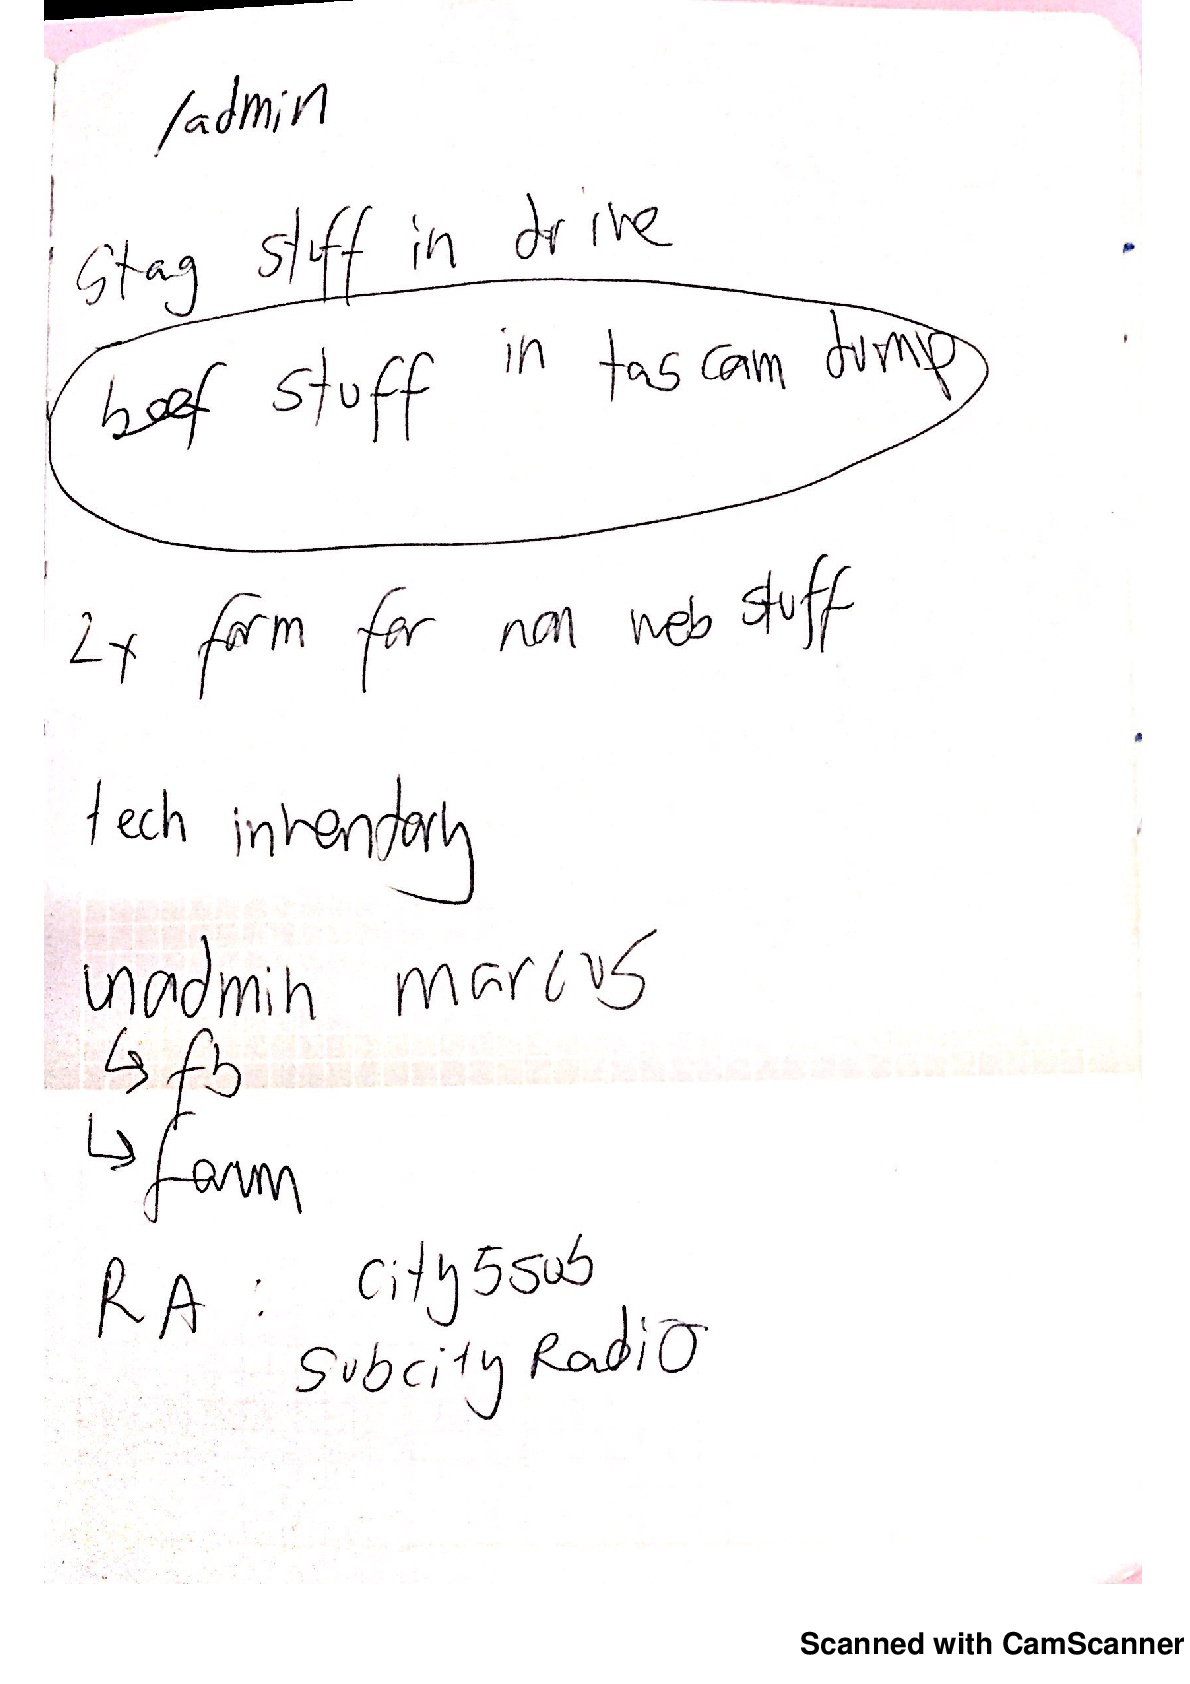 /admin
Stag stuff in drive
beef stuff in tascam dump
2x form for non web stuff
tech inventory
unadmin marcus
↳ fb
↳ form
RA : city5sub
Subcity Radio
Scanned with CamScanner